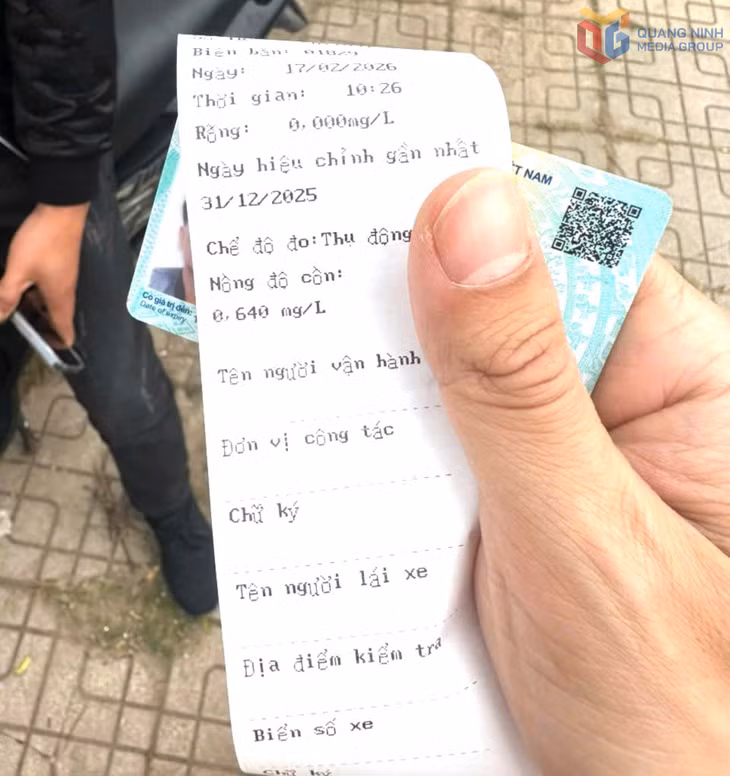 QUANG NINH
MEDIA GROUP
Biên bản:
Ngày: 17/02/2026
Thời gian: 10:26
Rỗng: 0,000mg/L
Ngày hiệu chỉnh gần nhất
31/12/2025
Chế độ đo:Thụ động
Nồng độ cồn:
0,640 mg/L
Tên người vận hành
Đơn vị công tác
Chữ ký
Tên người lái xe
Địa điểm kiểm tra
Biển số xe
Chữ ký
T NAM
Có giá trị đến:
Date of expiry